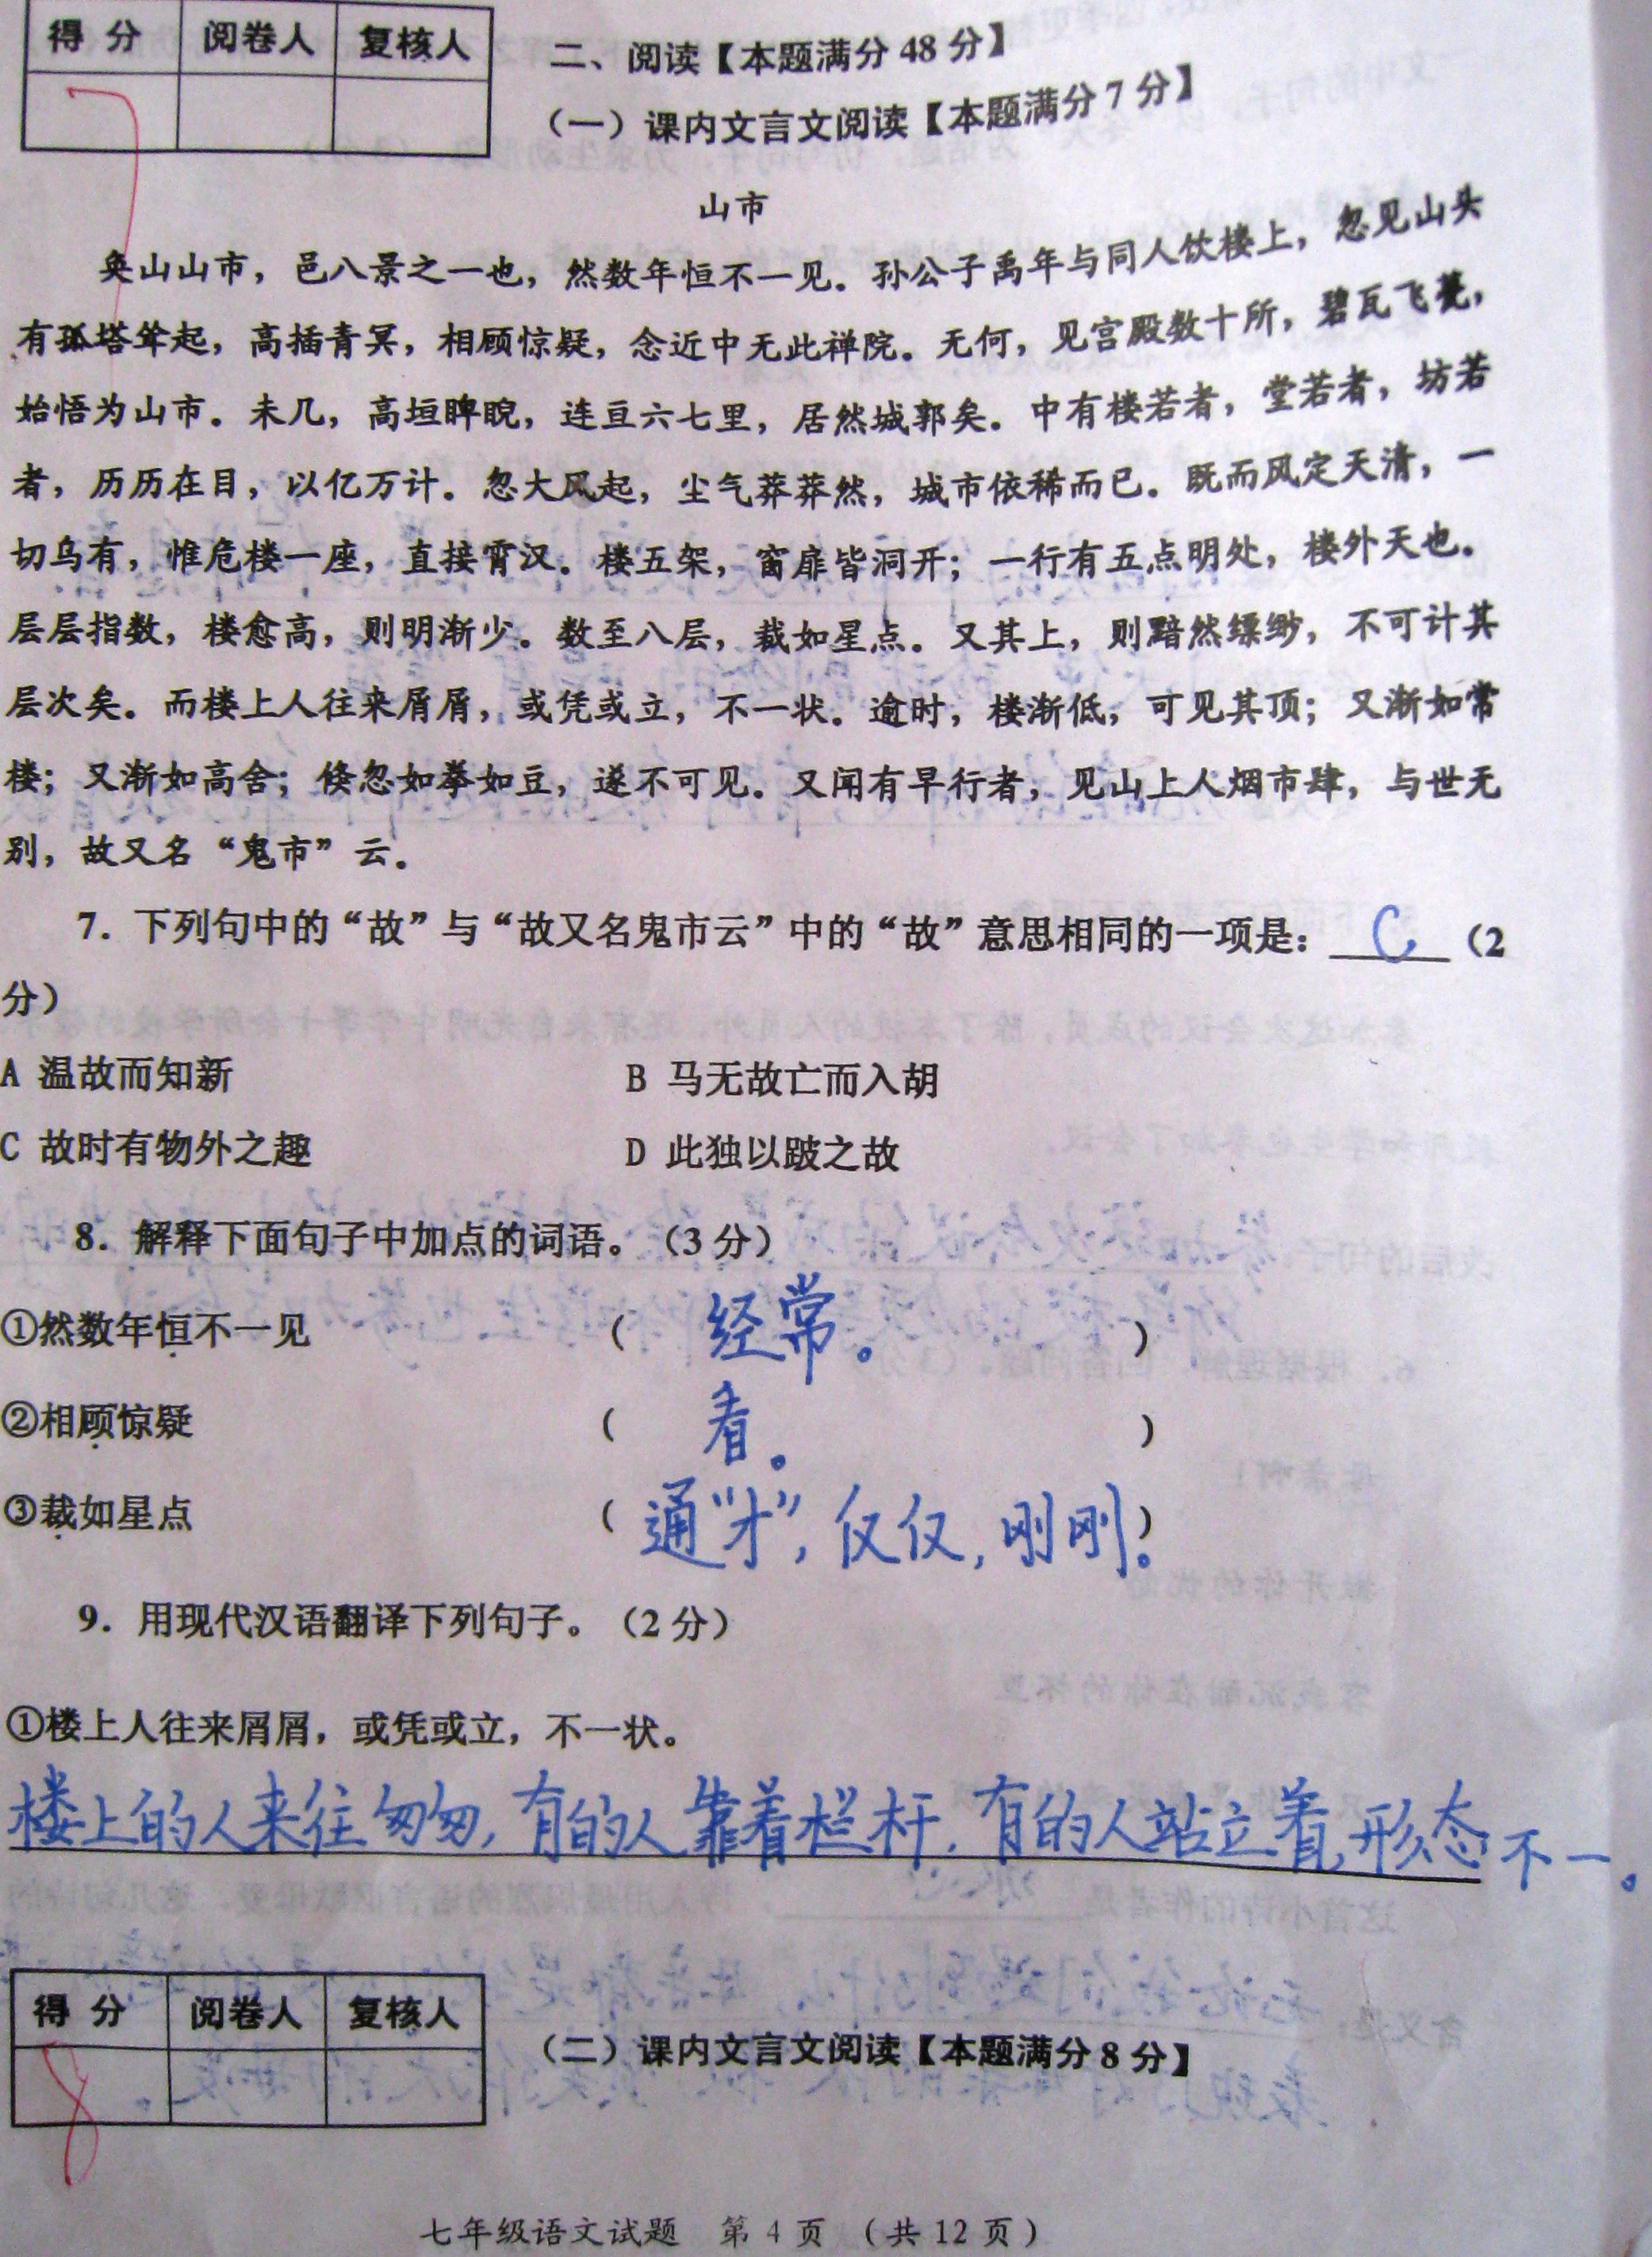 得 分 阅卷人 复核人
二、阅读【本题满分 48 分】
（一）课内文言文阅读【本题满分 7 分】
7
山市
奂山山市，邑八景之一也，然数年恒不一见。孙公子禹年与同人饮楼上，忽见山头
有孤塔耸起，高插青冥，相顾惊疑，念近中无此禅院。无何，见宫殿数十所，碧瓦飞甍，
始悟为山市。未几，高垣睥睨，连亘六七里，居然城郭矣。中有楼若者，堂若者，坊若
者，历历在目，以亿万计。忽大风起，尘气莽莽然，城市依稀而已。既而风定天清，一
切乌有，惟危楼一座，直接霄汉。楼五架，窗扉皆洞开；一行有五点明处，楼外天也。
层层指数，楼愈高，则明渐少。数至八层，裁如星点。又其上，则黯然缥缈，不可计其
层次矣。而楼上人往来屑屑，或凭或立，不一状。逾时，楼渐低，可见其顶；又渐如常
楼；又渐如高舍；倏忽如拳如豆，遂不可见。又闻有早行者，见山上人烟市肆，与世无
别，故又名“鬼市”云。
7．下列句中的“故”与“故又名鬼市云”中的“故”意思相同的一项是： C （2
分）
A 温故而知新 B 马无故亡而入胡
C 故时有物外之趣 D 此独以跛之故
8．解释下面句子中加点的词语。（3 分）
①然数年恒不一见 （ 经常。 ）
②相顾惊疑 （ 看。 ）
③裁如星点 （ 通“才”，仅仅，刚刚。）
9．用现代汉语翻译下列句子。（2 分）
①楼上人往来屑屑，或凭或立，不一状。
楼上的人来往匆匆，有的人靠着栏杆，有的人站立着，形态不一。
得 分 阅卷人 复核人
（二）课内文言文阅读【本题满分 8 分】
8
七年级语文试题 第 4 页 （共 12 页）